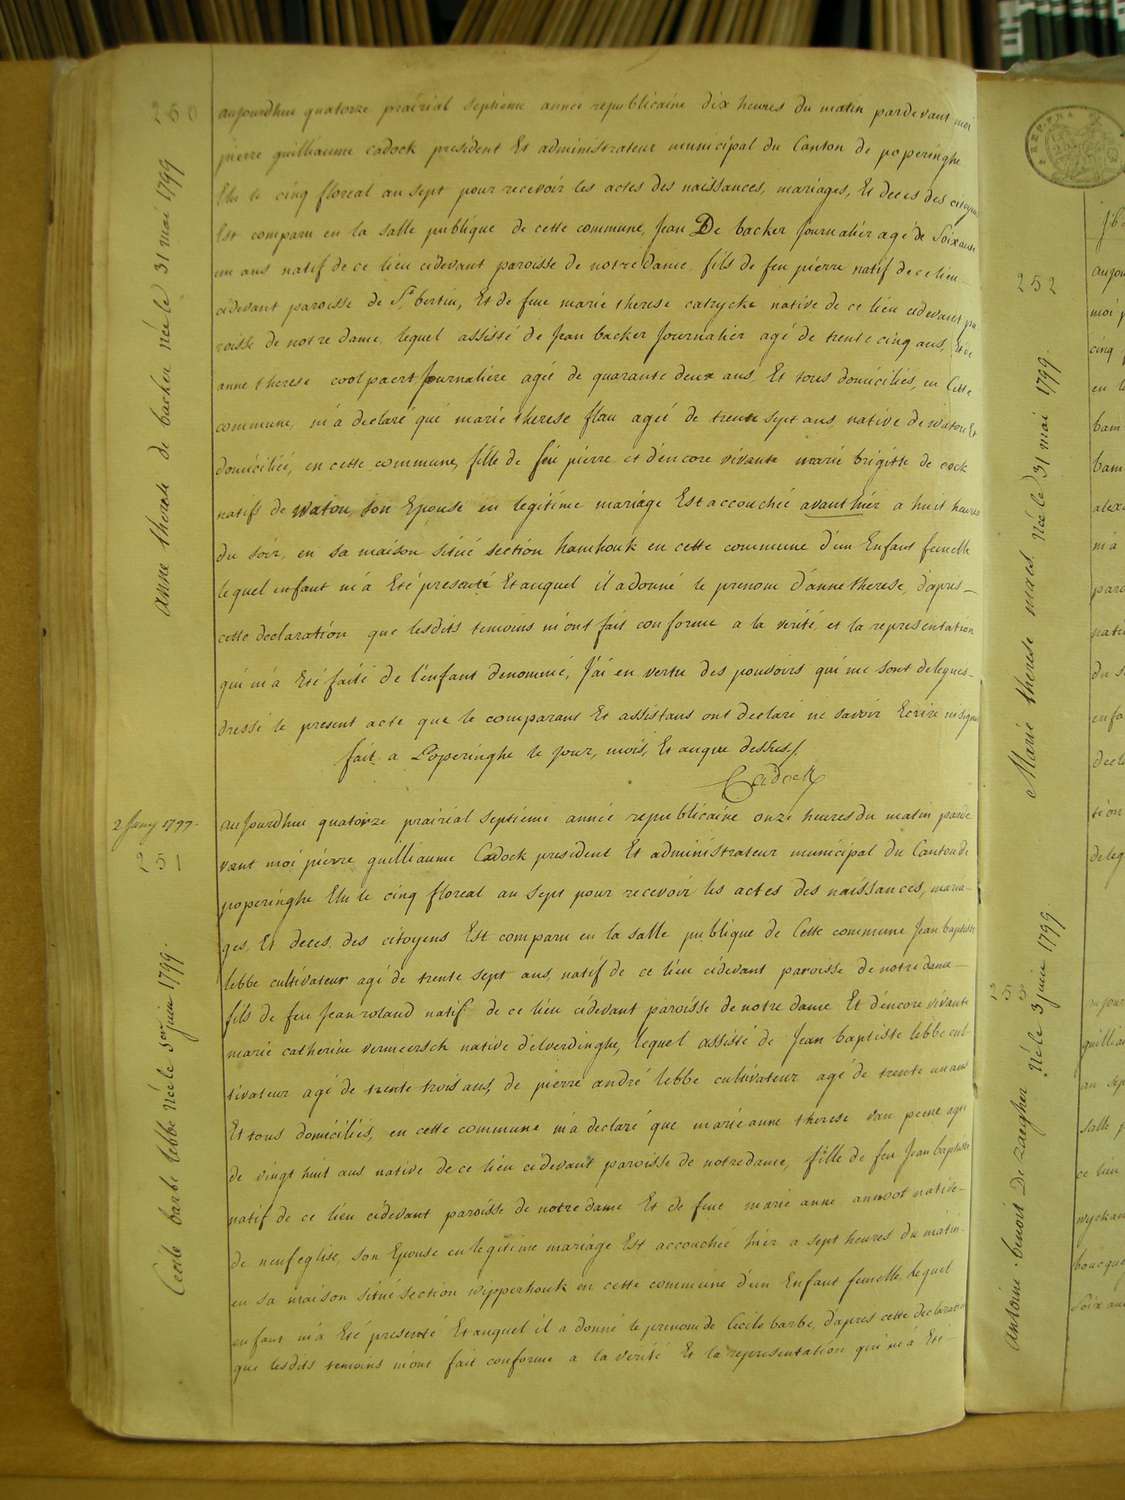 250
anne therese de backer née le 31 mai 1799
aujourdhui quatorze prairial septieme année republicaine dix heures du matin pardevant moi
pierre guilliaume cadock president Et administrateur municipal du Canton de poperinghe
Elu le cinq floreal an sept pour recevoir les actes des naissances, mariages, Et deces des citoyens
Est comparu en la salle publique de cette commune, Jean De backer Journalier agé de Soixante
un ans natif de ce lieu cidevant paroisse de notre dame, fils de feu pierre natif de ce lieu
cidevant paroisse de St bertin, Et de feue marie therese catrycke native de ce lieu cidevant pa
roisse de notre dame, lequel assisté de Jean backer Journalier agé de trente cinq ans, Et de
anne therese coolpaert Journaliere agée de quarante deux ans, Et tous domiciliés, en Cette
commune, m'a declaré que marie therese flau ageé de trente sept ans native de watou Et
domiciliée, en cette commune, fille de feu pierre et d'encore vivante marie brigitte de cock
natifs de watou, son Epouse en legitime mariage Est accouchée avant hier a huit heures
du soir, en sa maison situé section hamhouk en cette commune d'un Enfant femelle
lequel enfant m'a Eté presenté Et auquel il a donné le prenom d'anne therese, d'apres
cette declaration que lesdits temoins m'ont fait conforme a la verité, et la representation
qui m'a Eté faite de l'enfant denommé, J'ai en vertu des pouvoirs qui me sont delegues
dressé le present acte que le comparant Et assistans ont declaré ne savoir Ecrire ni signer
fait a Poperinghe le Jour, mois, Et an que dessus
Cadock
2 Juny 1799
251
Cecile barbe lebbe née le 1er juin 1799
aujourdhui quatorze prairial septieme année republicaine onze heures du matin parde
vant moi pierre guilliaume Cadock president Et administrateur municipal du Canton de
poperinghe Elu le cinq floreal an sept pour recevoir les actes des naissances, maria
ges, Et deces, des citoyens Est comparu en la salle publique de Cette commune Jean baptiste
lebbe cultivateur agé de trente sept ans, natif de ce lieu cidevant paroisse de notre dame
fils de feu Jean roland natif de ce lieu cidevant paroisse de notre dame Et d'encore vivante
marie catherine vermeersch native d'elverdinghe, lequel assisté de Jean baptiste lebbe cul
tivateur agé de trente trois ans, de pierre andré lebbe cultivateur agé de trente un ans
Et tous domiciliés, en cette commune m'a declaré que marie anne therese van peene agée
de vingt huit ans native de ce lieu cidevant paroisse de notre dame, fille de feu Jean baptiste
natif de ce lieu cidevant paroisse de notre dame Et de feue marie anne native
de neufeglise, son Epouse en legitime mariage Est accouchée hier a sept heures du matin
en sa maison situé section wipperhouk en cette commune d'un Enfant femelle, lequel
enfant m'a Eté presenté Et auquel il a donné le prenom de Cecile barbe, d'apres cette declaration
que lesdits temoins m'ont fait conforme a la verité Et la representation qui m'a Eté
252
Marie therese maes née le 31 mai 1799
253
Antoine benoit De zaegher Né le 3 juin 1799